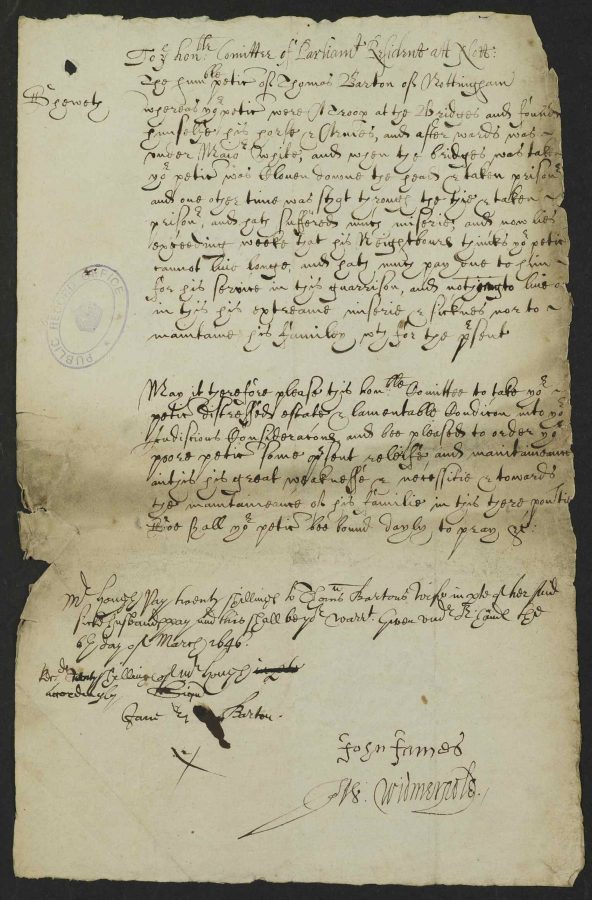 To ye honble: Comittee of Parliamt Resident att Nott:
The humble petic of Thomas Barton of Nottingham
Sheweth
whereas yor petic were A Troop at the Bridges and found
himselfe his horse & Armes, and after wards was
under Maior White, and when the bridges was taken
yor petic was Cloven downe the head & taken prisonr
and one other time was shot through the thie & taken
prisonr, and hath suffered much miserie, and now lies
exceeding weake that his Neighbours thinks yor petic
cannot live longe, and hath much pay due to him
for his service in this guarrison, and nothing to live
in this his extreame miserie & sicknes nor to
maintaine his familey wth for the prsent
May it therefore please this honble Comittee to take yor
petic distressed estate & lamentable Condicon into yor
Judiscious Consideracons and bee pleased to order yor
poore petic some prsent releiffe and maintaineance
in this his great weaknesse & necessitie & towards
the maintaineance of his familie in this there
Hee shall yor petic bee bound dayly to pray &c:
Mr Hough Pay twenty shillings to Thoms Bartons Wife in pte of her said
sicke husbands pay and this shall be yor warrt. Given undr or hand the
6th day of March 1646.
Recd twenty shillings of Mr Hough
accordingly Signu
Jane Barton.
X
John James
Widmerpole.
PUBLIC RECORD OFFICE